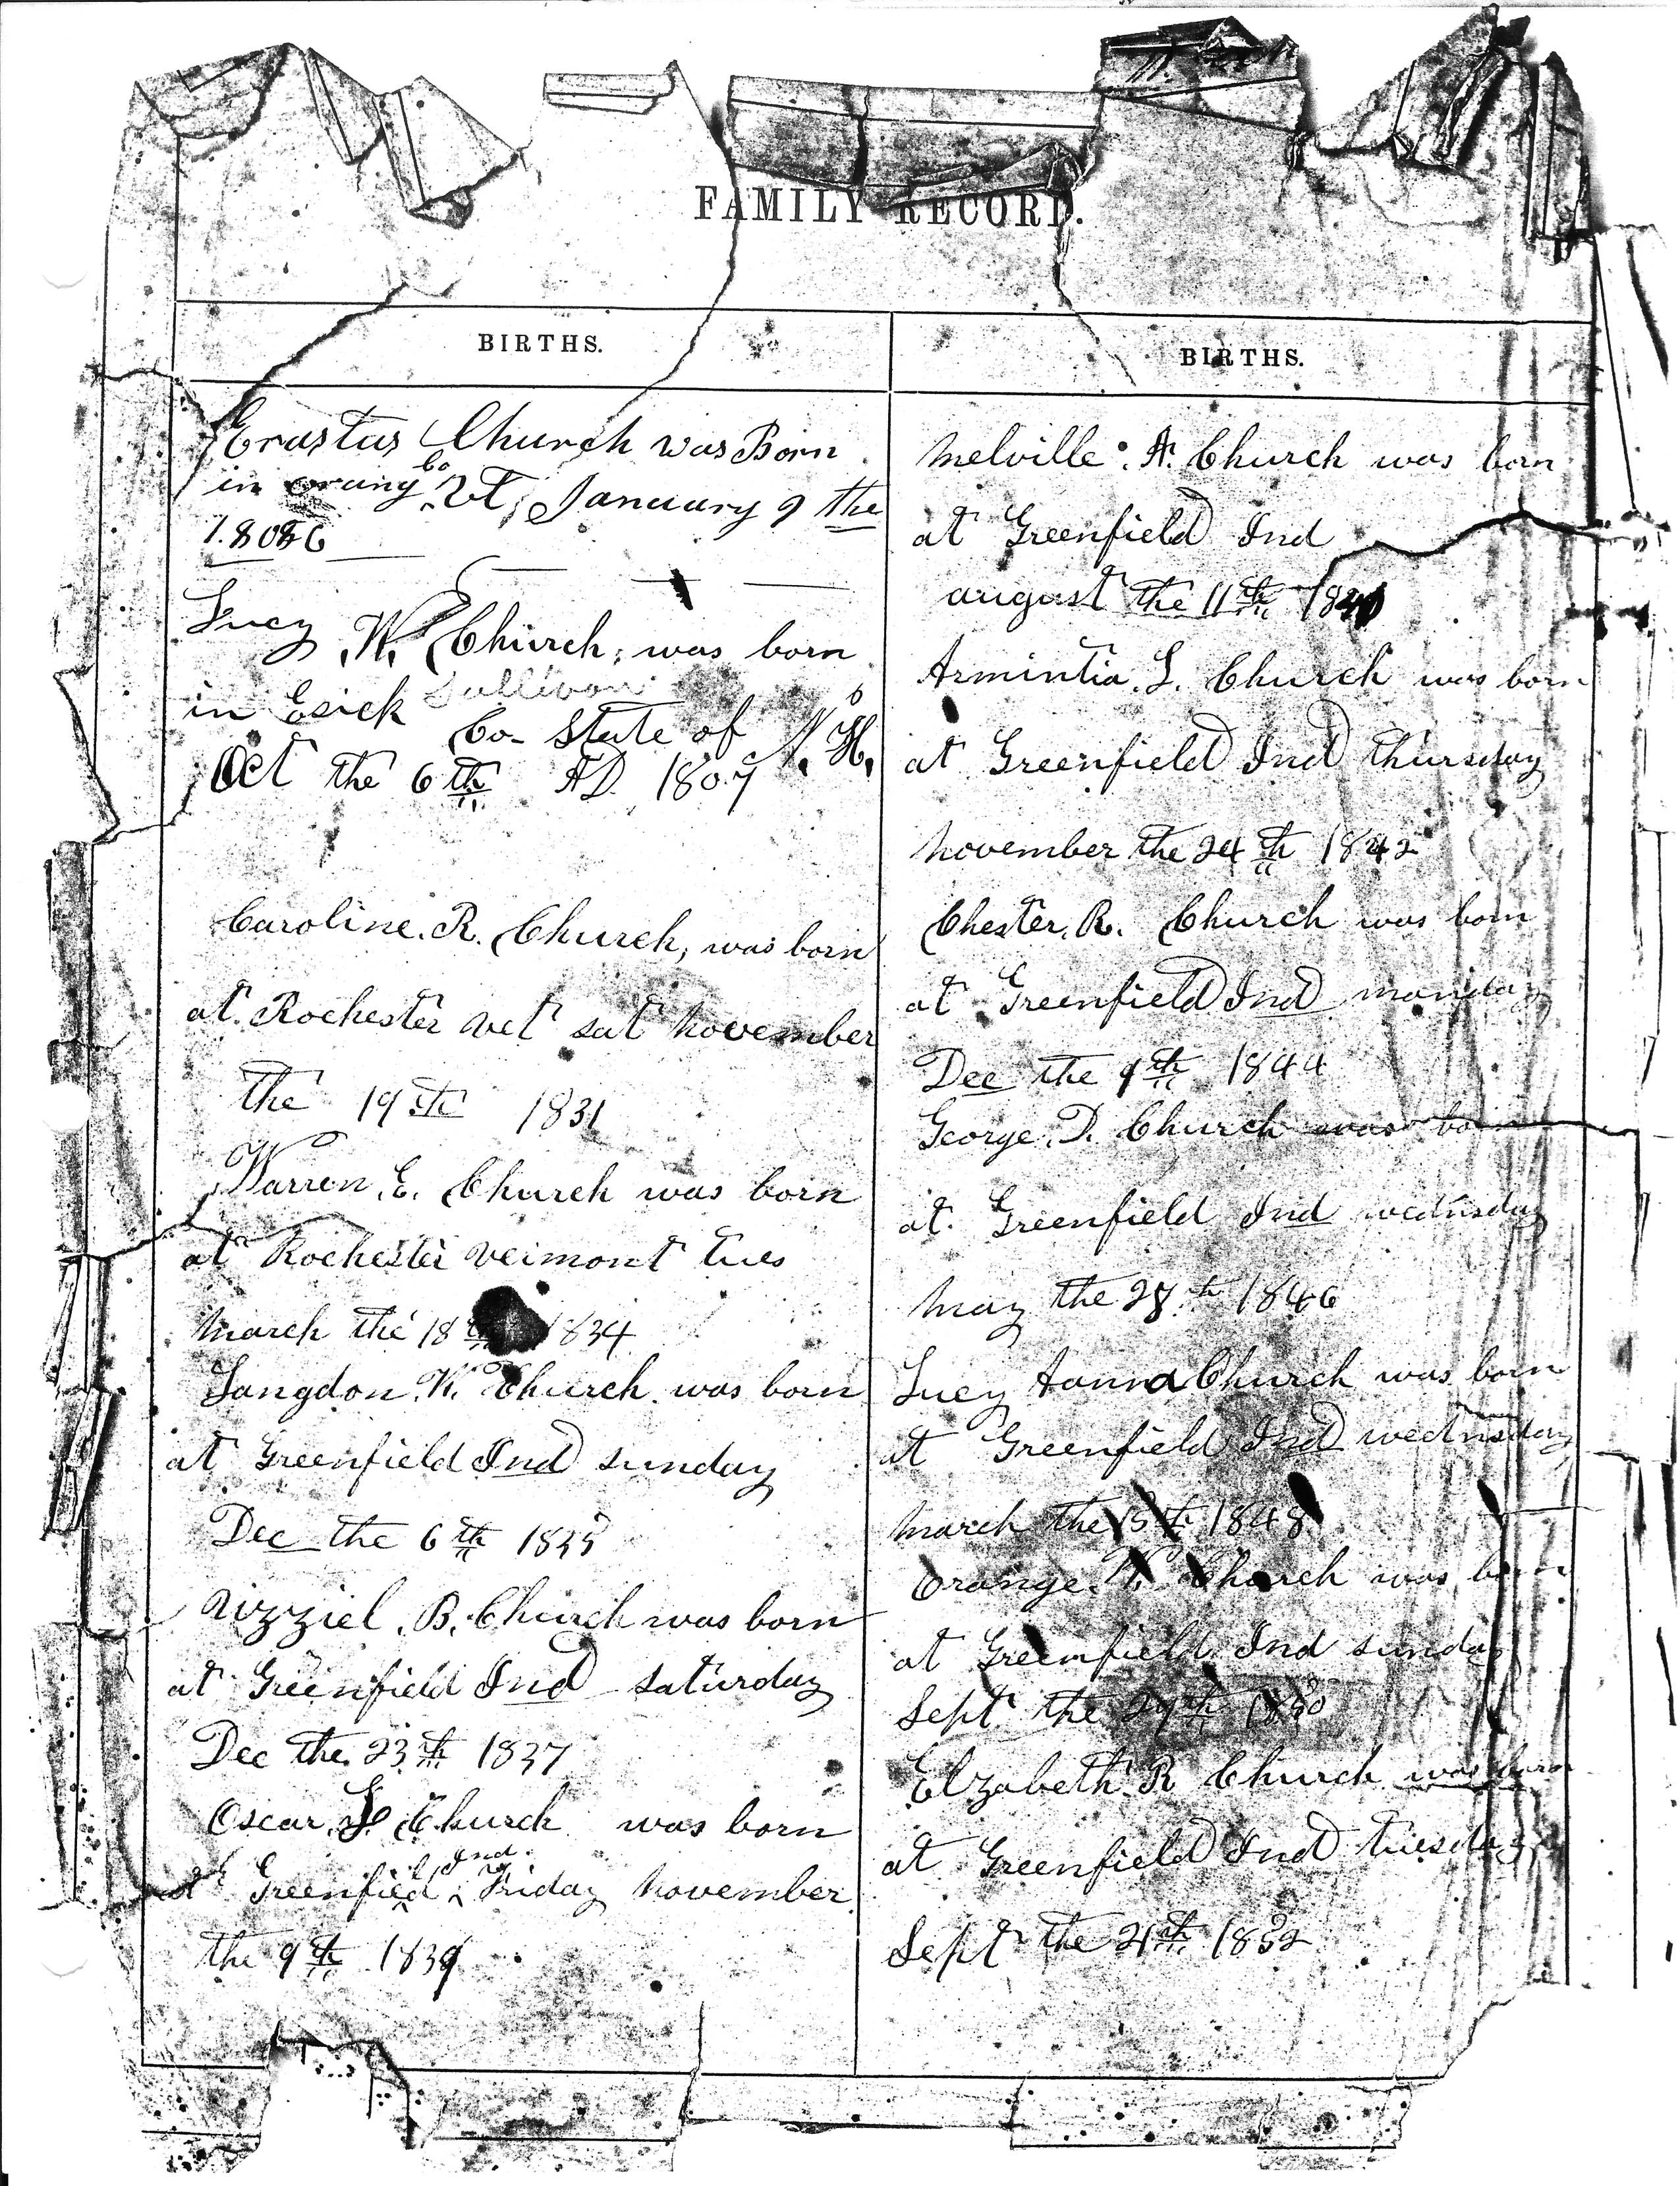 FAMILY RECORD.
BIRTHS.
Erastus Church was Born
in orang Co Vt, January 9 the
1806
Lucy W. Church, was born
in Esick Sullivan
Co- State of N. H.
Oct the 6th AD. 1807
Caroline. R. Church, was born
at Rochester vet sat november
the 19th 1831
Warren. E. Church was born
at Rochester Vermont tues
march the 18th 1834
Langdon. W. Church was born
at Greenfield Ind sunday
Dec the 6th 1835
Uzziel. B. Church was born
at Greenfield Ind saturday
Dec the 23th 1837
Oscar. L. Church was born
at Greenfied Ind. Friday november
the 9th 1839
BIRTHS.
Melville. A. Church was born
at Greenfield Ind
august the 11th 1840
Armintia. L. Church was born
at Greenfield Ind thursday
november the 24th 1842
Chester. R. Church was born
at Greenfield Ind monday
Dec the 9th 1844
George. D. Church was born
at Greenfield Ind wednsday
may the 28th 1846
Lucy Anna Church was born
at Greenfield Ind wednsday
march the 15th 1848
Orange. W. Church was born
at Greenfield Ind sunday
Sept the 29th 1850
Elzabeth. R Church was born
at Greenfield Ind tuesday
Sept the 21th 1852